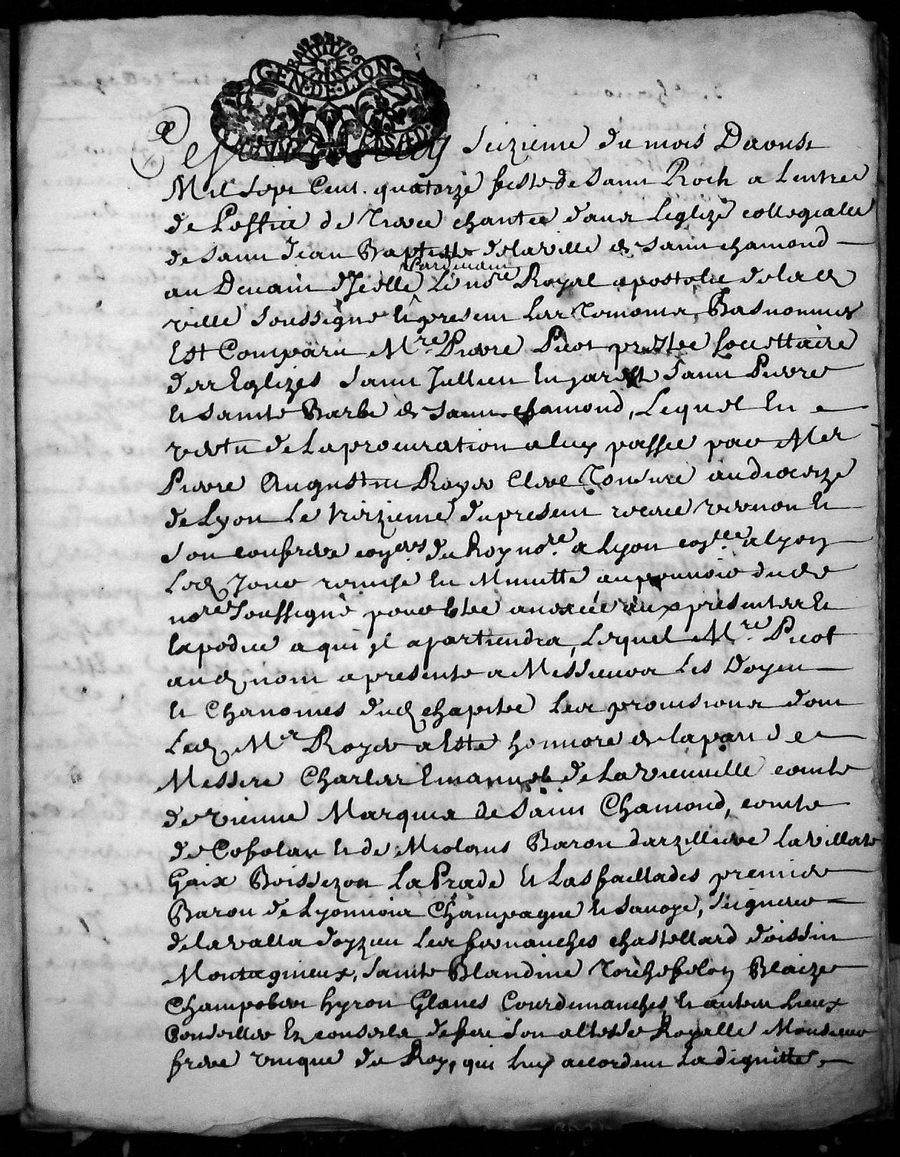 GEN. DE LYON
seizieme du mois Daoust
Mil sept Cent quatorze feste de Saint Roch a Lentree
de Loffice de Tierce chantee dans Leglize collegialle
de Saint Jean Baptiste de laville de Saint chamond
au Devant dicelle Pardevant Le nore Royal apostolic de lad
ville soussigné et present Les Temoins Basnommes
Est Comparu Mre Pierre Picot prestre socettaire
des Eglizes Saint Jullien En jarest Saint Pierre
et Sainte Barbe de Saint chamond, Lequel En
vertu de La procuration a luy passée par Me
Pierre Augustin Royer Clerc Tonsuré audioceze
de Lyon Le treizieme du present receue
son confrere du Roy nore a Lyon a Lyon
Led Jour remise En Minutte au pouvoir dud
nore soussigné pour estre aux presentes et
Expedice a qui jl apartiendra, Lequel Mre Picot
aud nom a presenté a Messieurs Les Doyen
et Chanoines dud chapitre Les provisions dont
Led Mr Royer a Esté honnoré de lapart de
Messire Charles Emanuel de La vieuville comte
de vienne Marquis de Saint Chamond, comte
de Confolan et de Miolans Baron darzilliere Lavillate
Gaix Boissezon La Prade et Las faillades premier
Baron de Lyonnois Champagne et Savoye, seigneur
de lavalla doyzieu Les farnanches chastellard doissin
Montagnieux, Sainte Blandine Torchefelon Blaize
Champobert hyron Glanes Courdemanches et autres Lieux
Conseiller En conseils de feu son altesse Royalle Monsieur
frere unique du Roy, qui luy accordent La dignitté